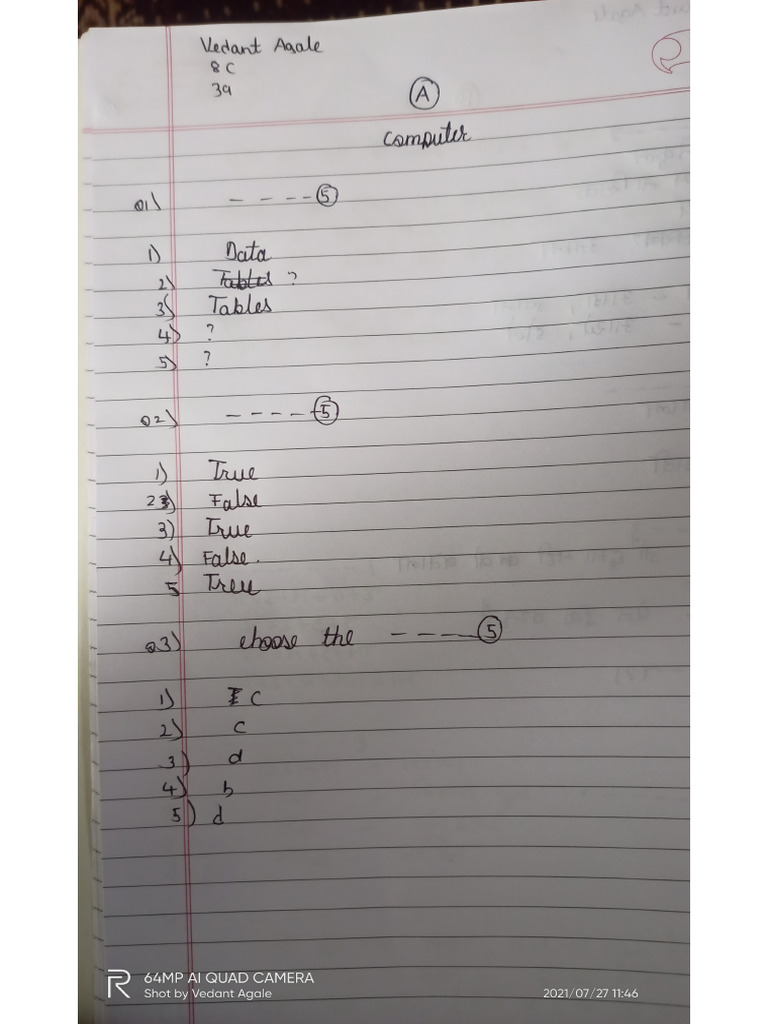 Vedant Agale
8 C
39
A
Computer
Q1) - - - - 5
1) Data
2) Tables ?
3) Tables
4) ?
5) ?
Q2) - - - - - 5
1) True
2) False
3) True
4) False.
5 Treu
Q3) choose the - - - - 5
1) C
2) c
3) d
4) b
5) d
R 64MP AI QUAD CAMERA
Shot by Vedant Agale
2021/07/27 11:46